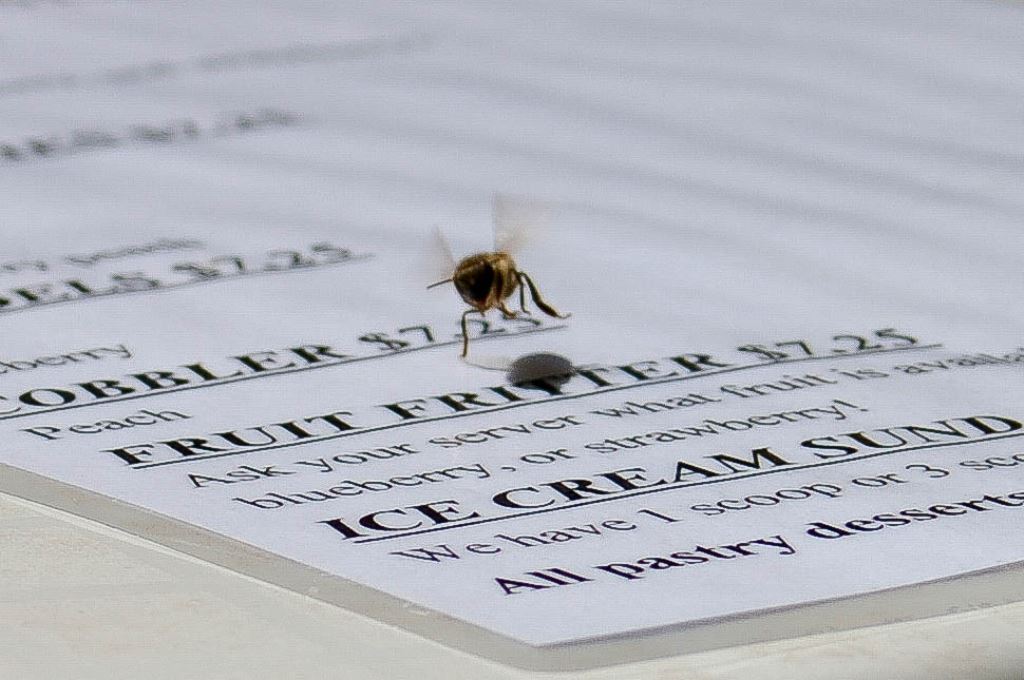 $7.25
berry
COBBLER $7.25
Peach
FRUIT FRITTER $7.25
Ask your server what fruit is availa
blueberry, or strawberry!
ICE CREAM SUND
We have 1 scoop or 3 sco
All pastry desserts